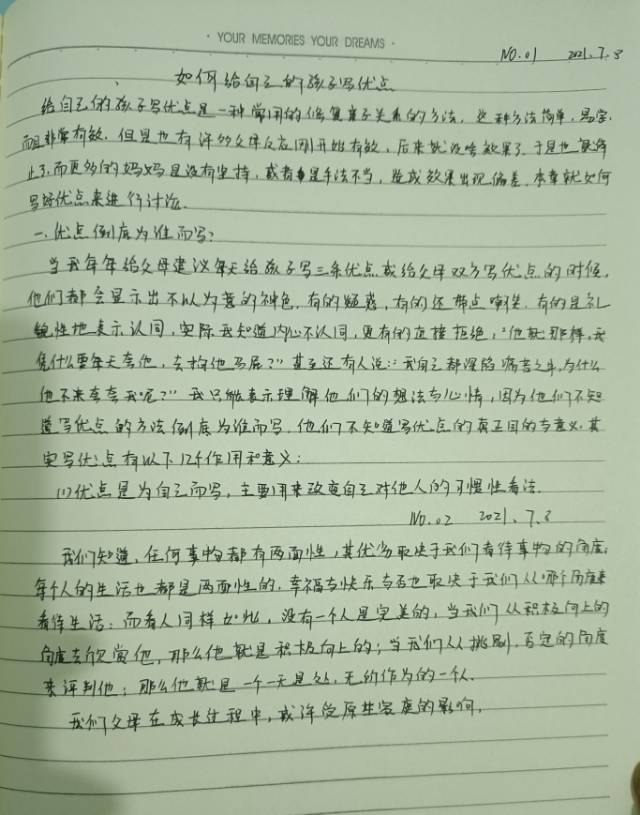 · YOUR MEMORIES YOUR DREAMS ·
NO.01 2021.7.8
如何给自己的孩子写优点
给自己的孩子写优点是一种常用的修复亲子关系的方法。这种方法简单,易学,
而且非常有效。但是也有许多父母反应刚开始有效,后来就没啥效果了。于是也就停
止了,而更多的妈妈是没有坚持,或者是手法不当,造成效果出现偏差。本章就如何
写好优点来进行讨论。
一、优点倒底为谁而写?
当我每年给父母建议每天给孩子写三条优点,或给父母双方写优点的时候,
他们都会显示出不以为意的神色,有的疑惑,有的还带点嘲笑,有的且礼
貌性地表示认同,实际我知道内心不认同,更有的直接拒绝,“他就那样,我
凭什么要每天夸他,去拍他马屁?”甚至还有人说:“我自己都深陷痛苦之中,为什么
他不来夸夸我呢?”我只能表示理解他们的想法与心情,因为他们不知
道写优点的方法倒底为谁而写,他们不知道写优点的真正目的与意义,其
实写优点有以下几个作用和意义:
(1)优点是为自己而写,主要用来改变自己对他人的习惯性看法。
NO.02 2021.7.8
我们知道,任何事物都有两面性,其优劣取决于我们看待事物的角度,
每个人的生活也都是两面性的,幸福与快乐与否也取决于我们从哪个角度来
看待生活;而看人同样如此,没有一个人是完美的,当我们从积极向上的
角度去欣赏他,那么他就是积极向上的;当我们从挑剔,否定的角度
来评判他;那么他就是一个一无是处,无所作为的一个人。
我们父母在成长过程中,或许受原生家庭的影响,